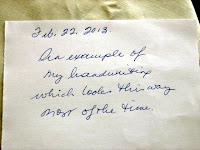 Feb. 22. 2013.
An example of
my handwriting
which looks this way
most of the time.